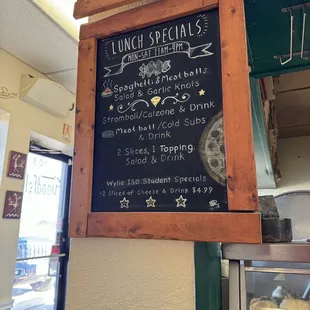 LUNCH SPECIALS
MON-SAT 11AM-4PM
Spaghetti & Meatballs
Salad & Garlic Knots
Stromboli/Calzone & Drink
Meatball/Cold Subs
& Drink
2 Slices, 1 Topping
Salad & Drink
Wylie ISD Student Specials
-2 Slices of Cheese & Drink $4.99